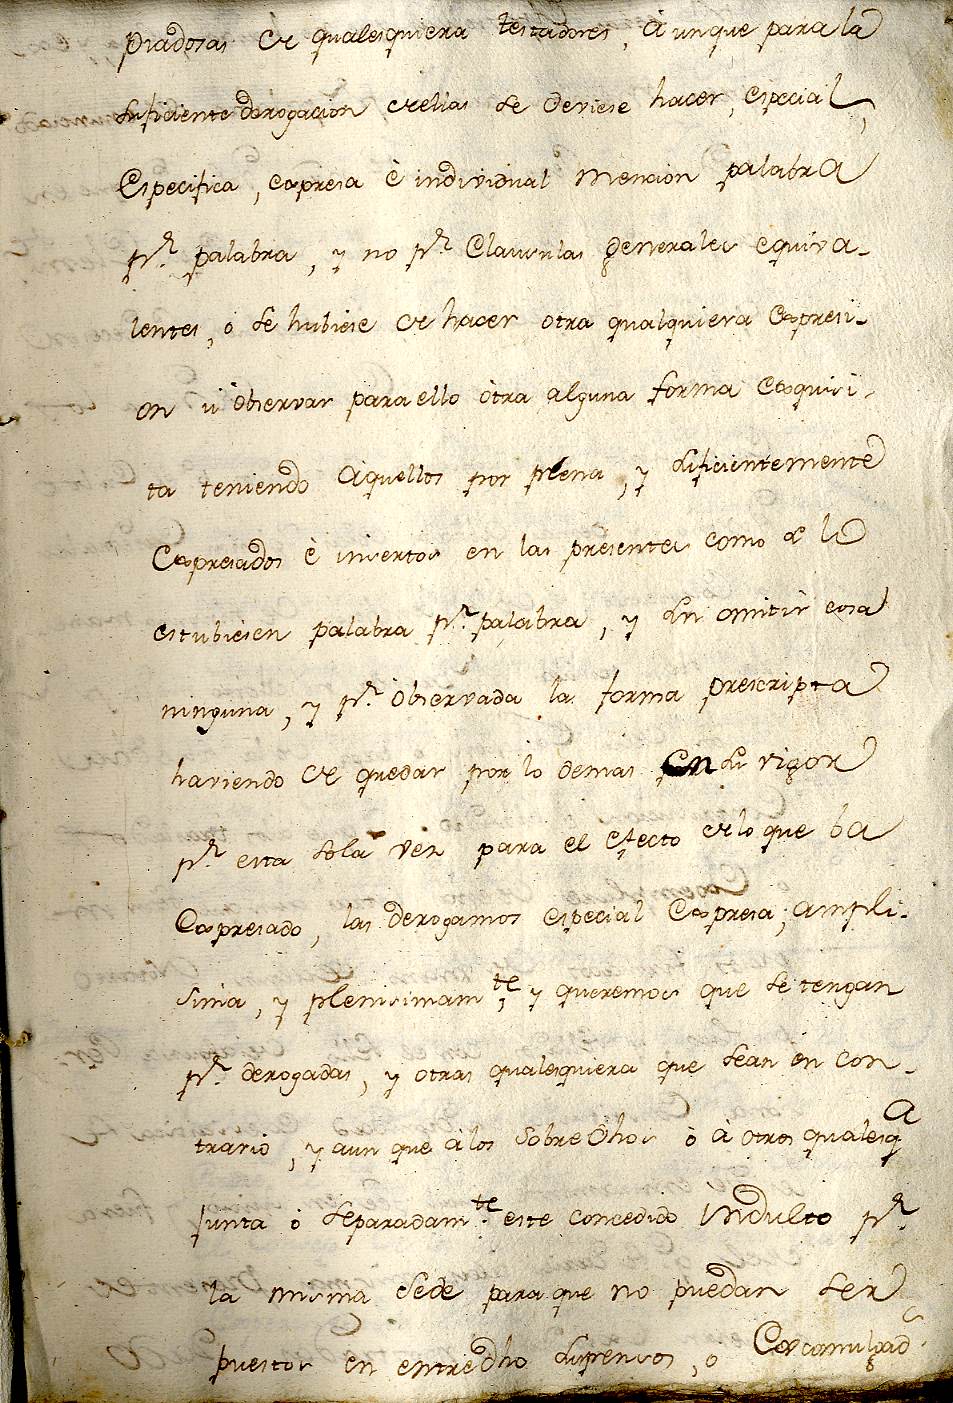 Piadosas de qualesquiera testadores, à unque para la
suficiente derogacion de ellas se deviese hacer, especial,
Especifica, expresa è individual mencion palabra
pr. palabra, y no pr. Clausulas generales equiva-
lentes, o se hubiese de hacer otra qualquiera expresi-
on ù observar para ello òtra alguna forma exquisi-
ta teniendo àquellos por plena, y suficientemente
Expresados è insertos en las presentes como si
estubiesen palabra pr. palabra, y sin omitir cosa
ninguna, y pr. observada la forma prescripta
haviendo de quedar por lo demas en su vigor
pr. esta sola vez para el efecto de lo que ba
Expresado, las derogamos especial Expresa, ampli-
sima, y plenisimamte, y queremos que se tengan
pr. derogadas, y otras qualesquiera que sean en con-
trario, y aun que à los sobre dhos ò à otros qualesqa
junta ò separadamte. este concedido Indulto pr.
la misma Sede para que no puedan ser
puestos en entredho suspensos, o Excomulgad